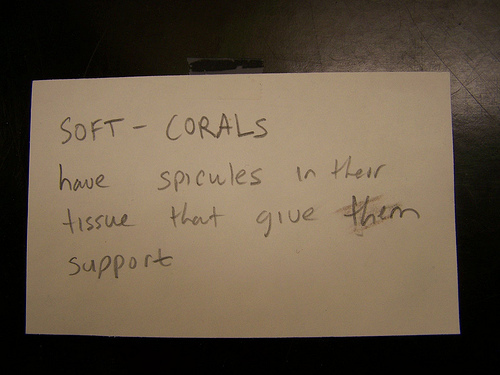 SOFT - CORALS
have spicules in their
tissue that give them
support